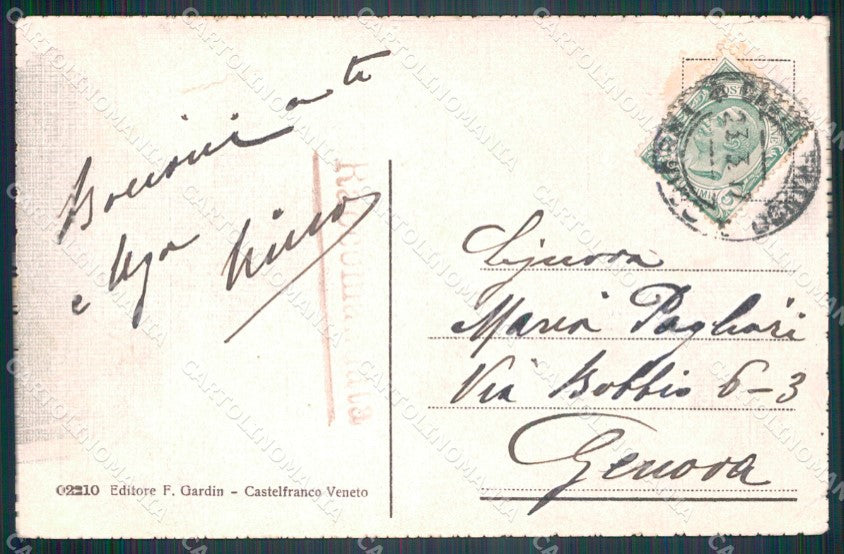 Bacioni a te
e Ugo
Raccomandata
Signora
Maria Pagliari
Via Bobbio 6-3
Genova
02210 Editore F. Gardin - Castelfranco Veneto
CARTOLINOMANIA